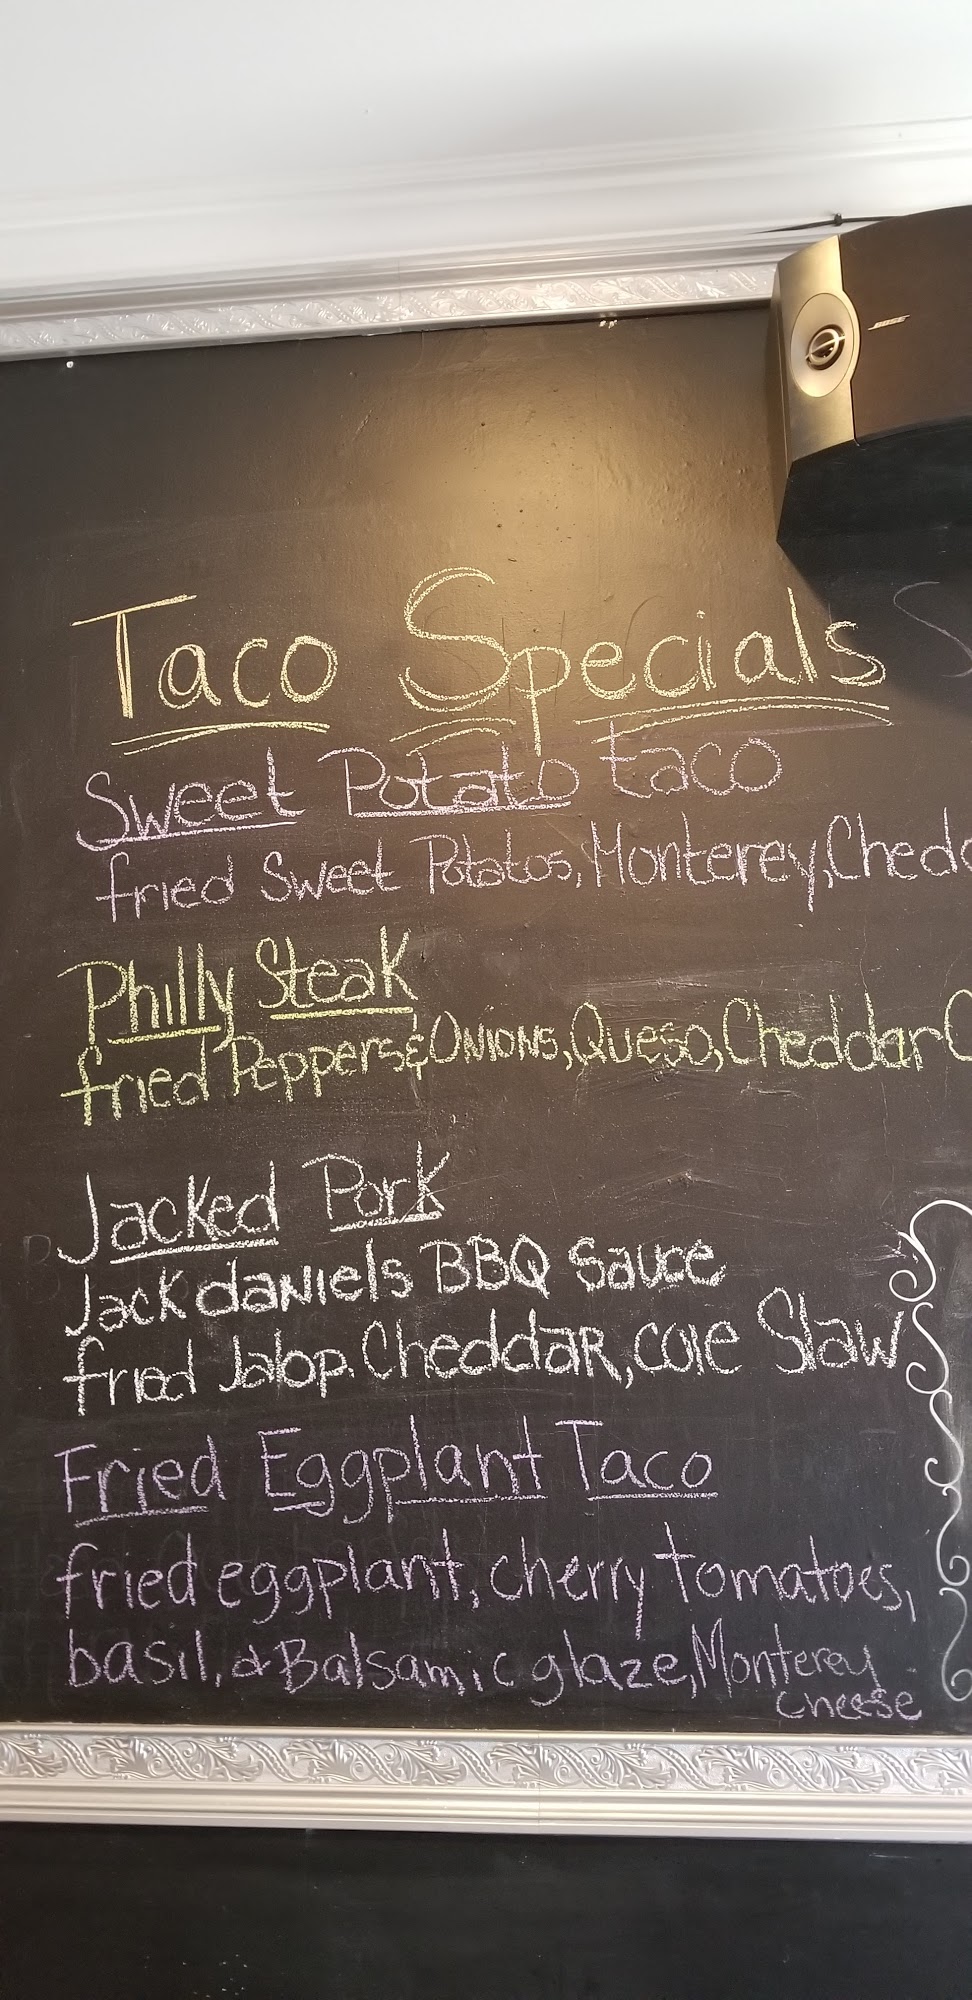 BOSE
Taco Specials
Sweet Potato taco
fried Sweet Potatos, Monterey, Chedd
Philly Steak
fried Peppers & Onions, Queso, Cheddar C
Jacked Pork
Jack daniels BBQ Sauce
fried Jalop. Cheddar, cole Slaw
Fried Eggplant Taco
fried eggplant, cherry tomatoes,
basil, & Balsamic glaze, Monterey
cheese